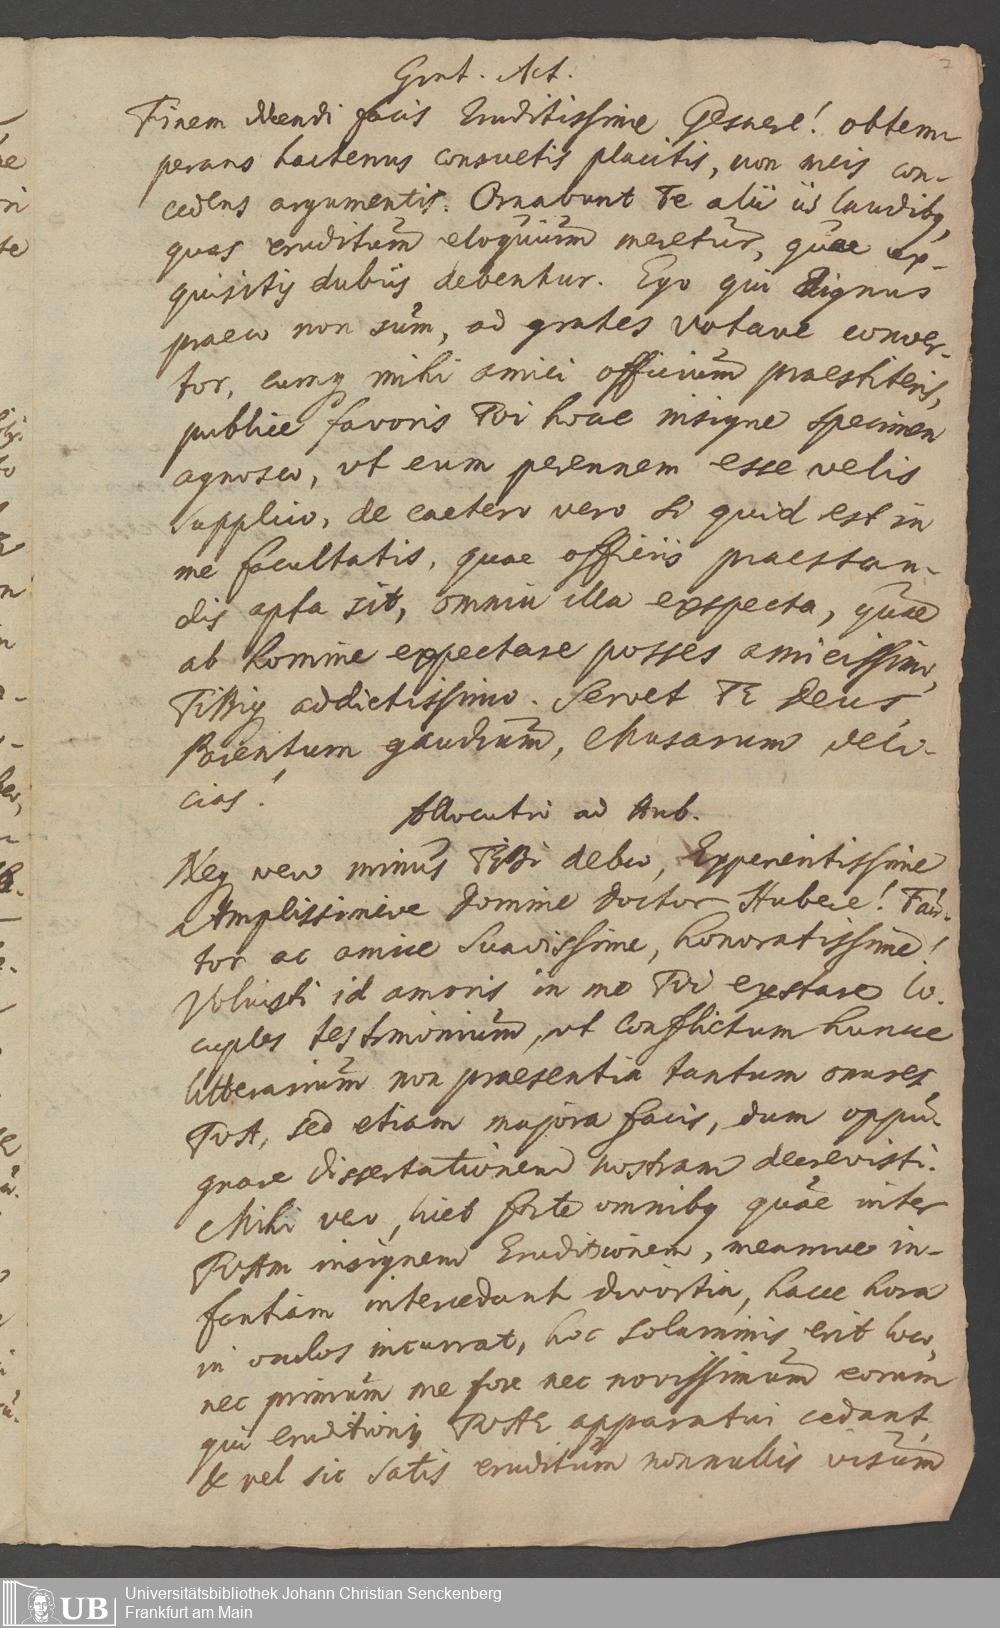 Grat. Act.
Finem dicendi facis Eruditissime Gesnere! obtem-
perans hactenus consuetis placitis, non meis con-
cedens argumentis. Ornabunt Te alii iis laudibq,
quas eruditum eloquium meretur, quae ex-
quisitis dubiis debentur. Ego qui dignus
praeco non sum, ad grates votaue conver-
tor, cumq mihi amici officium praestiteris,
publice favoris Tui hocce insigne specimen
agnosco, ut eum perennem esse velis
supplico, de caetero vero si quid est in
me facultatis, quae officiis praestan-
dis apta sit, omnia illa exspecta, quae
ab homine expectare posses amicissimo,
TiBiq addictissimo. Servet TE Deus
Parentum gaudium, Musarum deli-
cias!
Allocutio ad Hub.
Neq vero minus TiBi debeo, Experientissime
Amplissimeve Domine Doctor Hubere! Fau-
tor ac amice Suavissime, honoratissime!
Voluisti id amoris in me Tui exstare lo-
cuples testimonium, ut Conflictum hunce
litterarium non praesentia tantum ornares
TuA, sed etiam majora facis, dum oppu-
gnare dissertationem nostram decrevisti.
Mihi vero, licet forte omnibq quae inter
TuAm insignem Eruditionem, meamve in-
fantiam intercedunt divortia, hacce hora
in oculos incurrat, hoc solaminis erit loco,
nec primum me fore nec novissimum eorum
qui eruditionis TuAE apparatui cedant,
& vel sic satis eruditum nonnullis visum
7
UB
Universitätsbibliothek Johann Christian Senckenberg
Frankfurt am Main